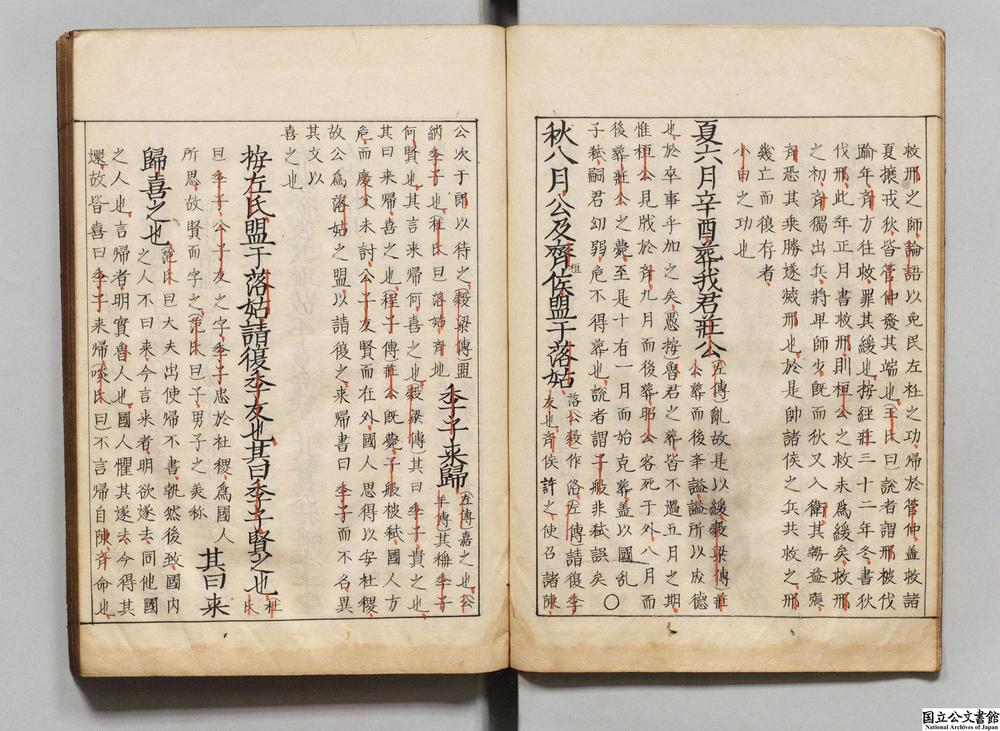 救邢之師論語以免民左衽之功歸於管仲蓋救諸
夏攘戎狄皆管仲發其端也王氏曰說者謂邢被伐
踰年齊方往救罪其緩也按經莊三十二年冬書狄
伐邢此年正月書救邢則桓公之救未為緩矣救邢
之初齊獨出兵將卑師少既而狄又入衛其勢益張
齊恐其乘勝遂滅邢也於是帥諸侯之兵共救之邢
幾亡而復存者
小白之功也
夏六月辛酉葬我君莊公
左傳亂故是以緩穀梁傳莊
公葬而後舉謚謚所以成德
也於卒事乎加之矣愚按魯君之葬皆不過五月之期
惟桓公見戕於齊九月而後葬昭公客死于外八月而
後葬莊公之薨至是十有一月而始克葬蓋以國亂
子弒嗣君幼弱危不得葬也說者謂子般非弒誤矣〇
秋八月公及齊侯盟于落姑
桓
落公穀作洛左傳請復季
友也齊侯許之使召諸陳
公次于郎以待之穀梁傳盟
納季子也杜氏曰落姑齊地
季子來歸
左傳嘉之也公
羊傳其稱季子
何賢也其言來歸何喜之也穀梁傳其曰季子貴之也
其曰來歸喜之也程子傳莊公既薨子般被弒國人方
危而慶父未討公子友賢而在外國人思得以安社稷
故公為落姑之盟以請復之來歸書曰季子而不名異
其文以
喜之也
按左氏盟于落姑請復季友也其曰季子賢之也
杜
氏
曰季子公子友之字季子忠於社稷為國人
所思故賢而字之范氏曰子男子之美稱
其曰來
歸喜之也
范氏曰大夫出使歸不書執然後致國内
之人不曰來今言來者明欲遂去同他國
之人也言歸者明實魯人也國人懼其遂去今得其
還故皆喜曰季子來歸啖氏曰不言歸自陳齊命也
国立公文書館
National Archives of Japan